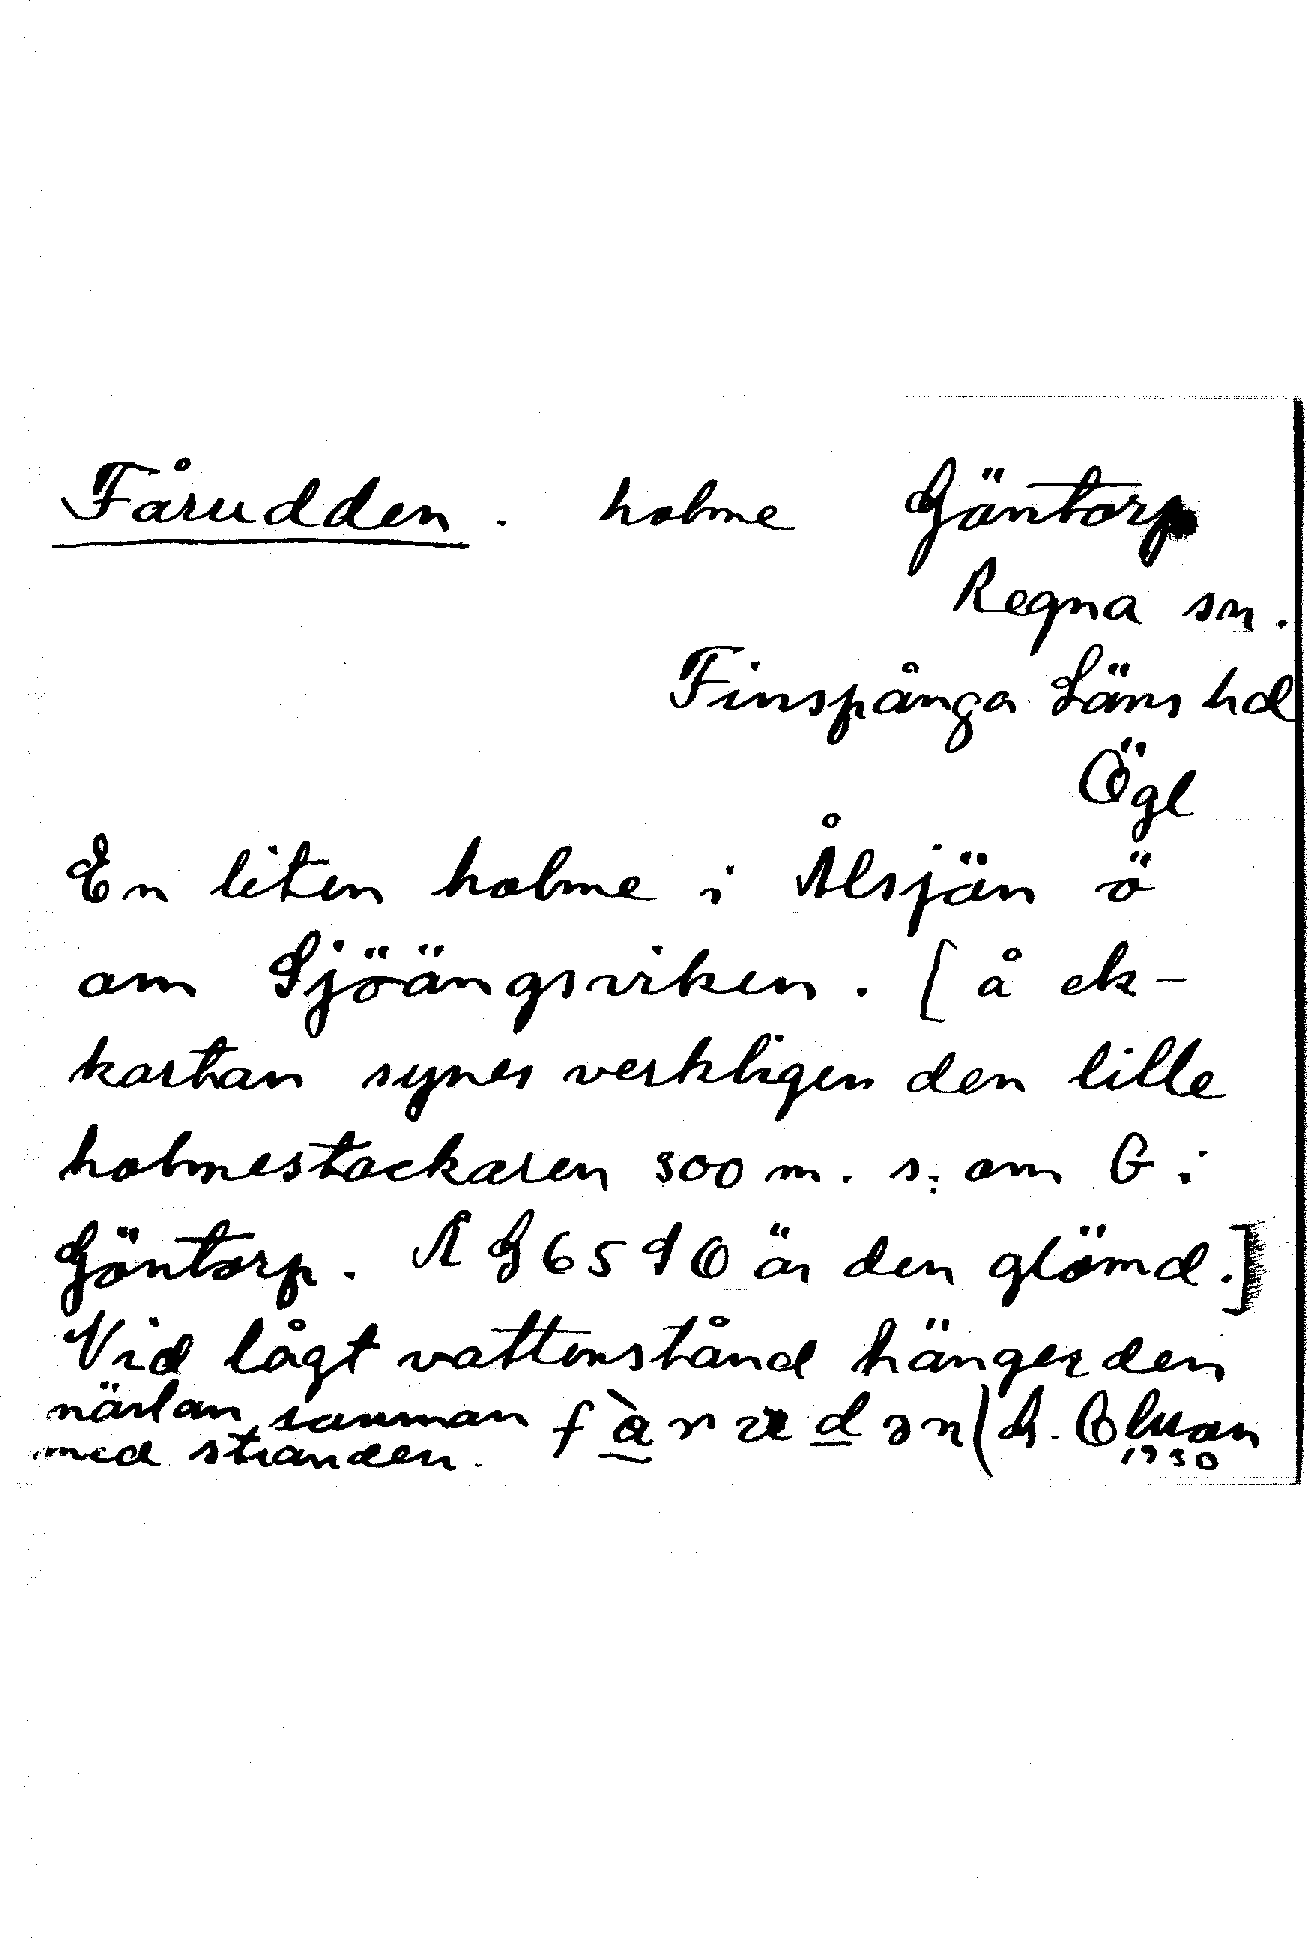 Fårudden. holme Göntorp
Regna sn.
Finspånga Läns hd
Ögl
En liten holme i Ålsjön ö
om Sjöängsviken. [å ek-
kartan synes verkligen den lille
holmestackaren 300 m. s. om G i
Göntorp. Å G 65 10 är den glömd.]
Vid lågt vattenstånd hänger den
nästan samman
med stranden.
1930